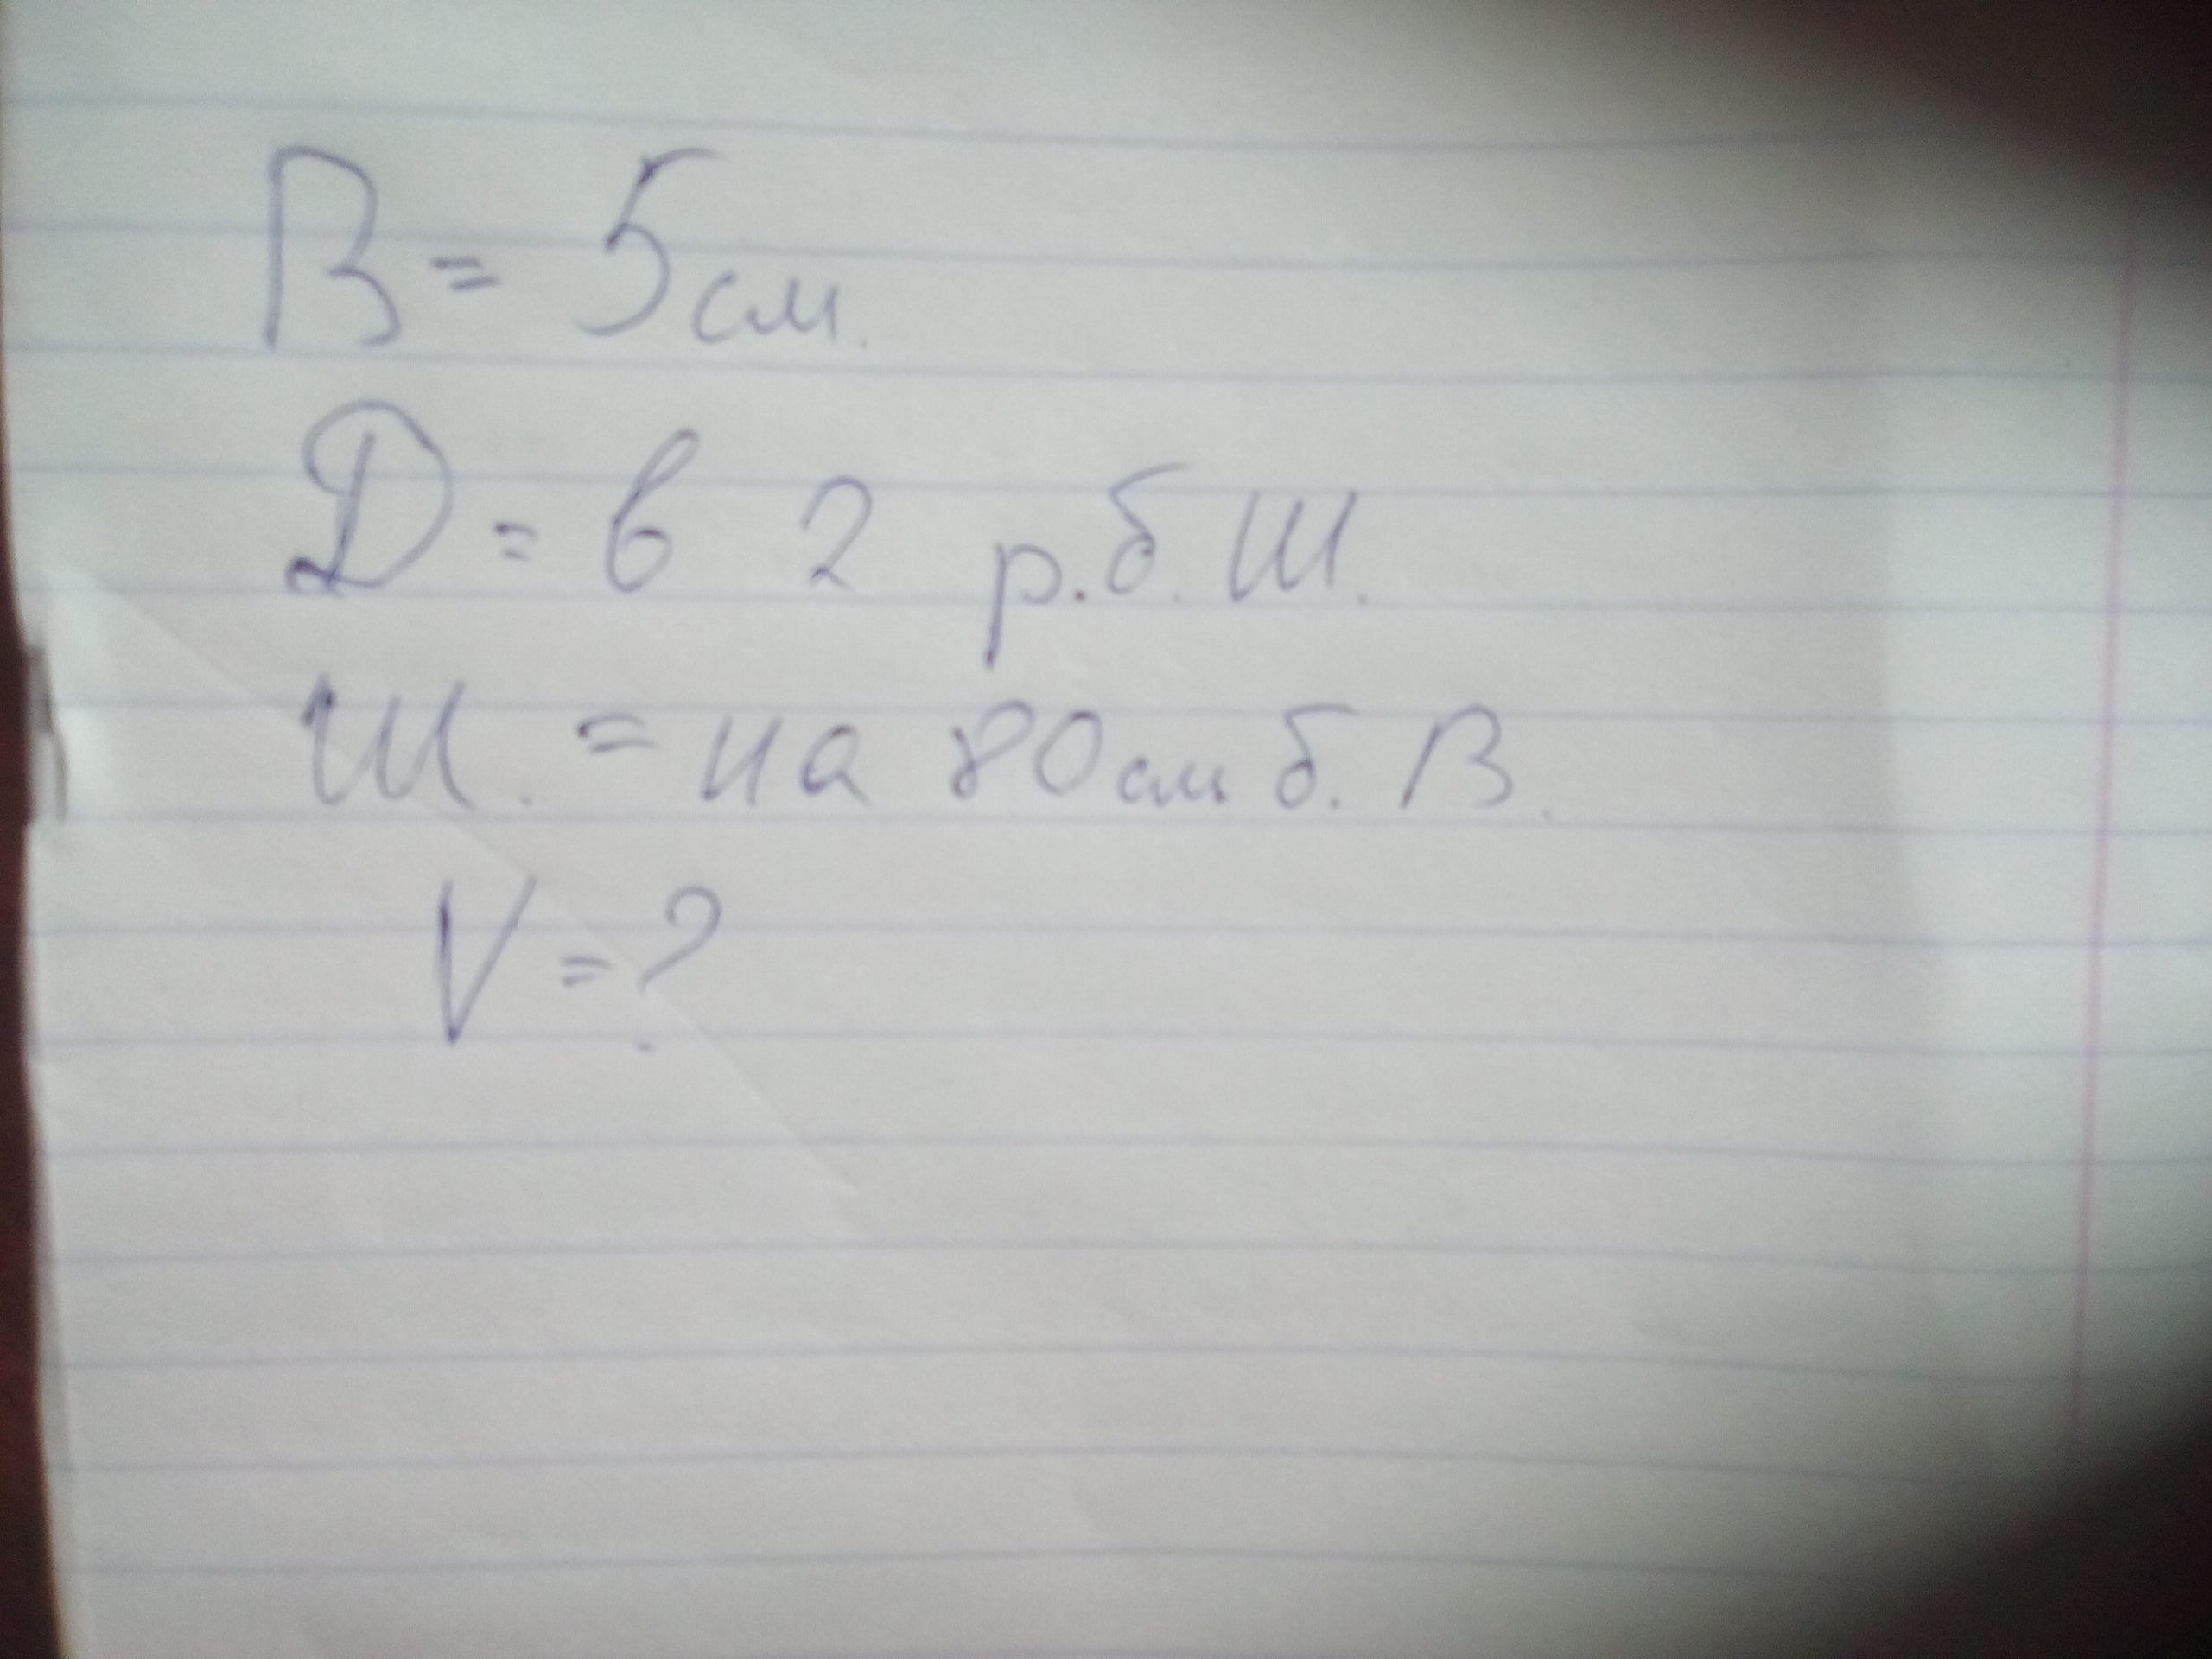 В = 5 см.
Д = в 2 р. б. Ш.
Ш. = на 80 см б. В.
V = ?